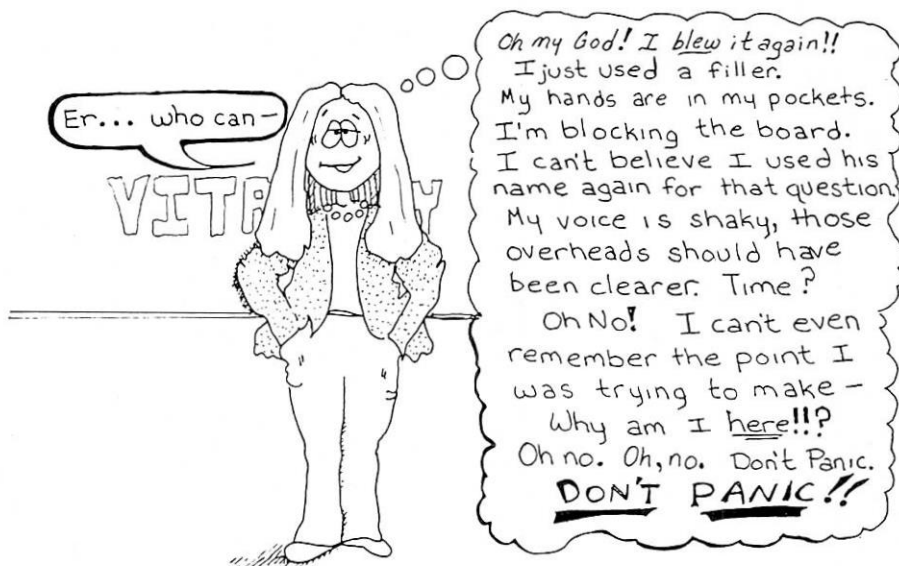 Er... who can-
VITA Y
Oh my God! I blew it again!!
I just used a filler.
My hands are in my pockets.
I'm blocking the board.
I can't believe I used his
name again for that question.
My voice is shaky, those
overheads should have
been clearer. Time?
Oh No! I can't even
remember the point I
was trying to make -
Why am I here!!?
Oh no. Oh, no. Don't Panic.
DON'T PANIC!!